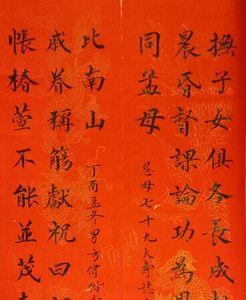 撫子女俱各長成
晨昏督課論功為母
同孟母
岳母七十九大壽誌
比南山
丁酉孟冬男方偉
戚眷稱觴獻祝曰
帳椿萱不能並茂